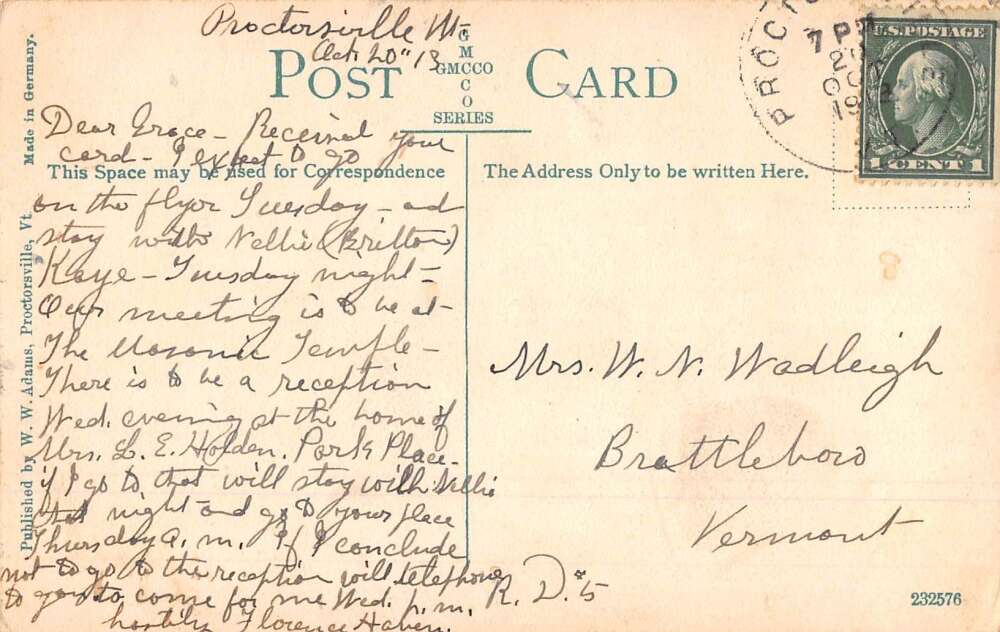 Proctorsville Vt.
Oct. 20" 13
POST CARD
GMCCO
G
M
C
C
O
SERIES
PROCTO
7 PM
20
OCT
191
U.S. POSTAGE
1 CENT 1
Dear Grace - Received your
card - I expect to go
This Space may be used for Correspondence
The Address Only to be written Here.
on the flyer Tuesday - ad
stay with Nellie (Britton)
Kaye - Tuesday night -
Our meeting is to be at
The Masonic Temple -
There is to be a reception
Wed. evening at the home of
Mrs. L. E. Holden. Park Place -
if I go to that will stay with Nellie
that night and go to your place
Thursday A. m. If I conclude
not to go to the reception will telephone
to you to come for me Wed. p. m.
hastily Florence Haven.
Mrs. W. N. Wadleigh
Brattleboro
Vermont
R. D. #5
232576
Made in Germany.
Published by W. W. Adams, Proctorsville, Vt.